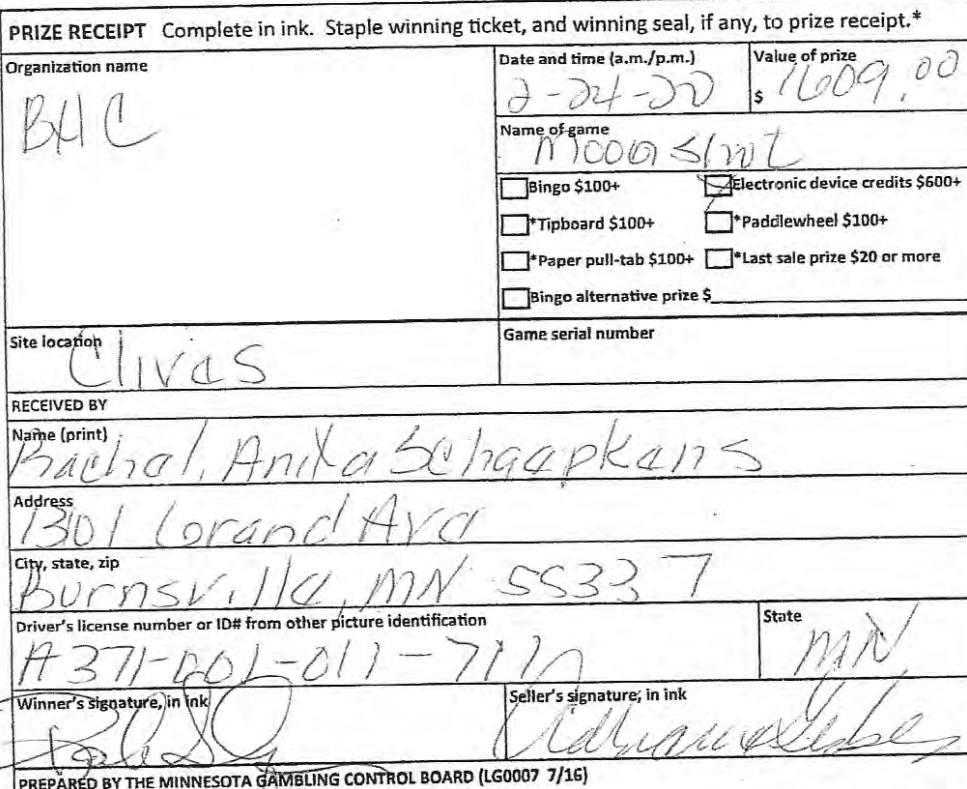 PRIZE RECEIPT Complete in ink. Staple winning ticket, and winning seal, if any, to prize receipt.*
Organization name
BHC
Date and time (a.m./p.m.)
2-24-20
Value of prize
$ 1609.00
Name of game
Moon Shot
Bingo $100+
Electronic device credits $600+
*Tipboard $100+
*Paddlewheel $100+
*Paper pull-tab $100+
*Last sale prize $20 or more
Bingo alternative prize $
Site location
Clives
Game serial number
RECEIVED BY
Name (print)
Rachel, Anita Schaapkens
Address
1301 Grand Ave
City, state, zip
Burnsville, MN 55337
Driver's license number or ID# from other picture identification
State
MN
Winner's signature, in ink
Seller's signature, in ink
PREPARED BY THE MINNESOTA GAMBLING CONTROL BOARD (LG0007 7/16)